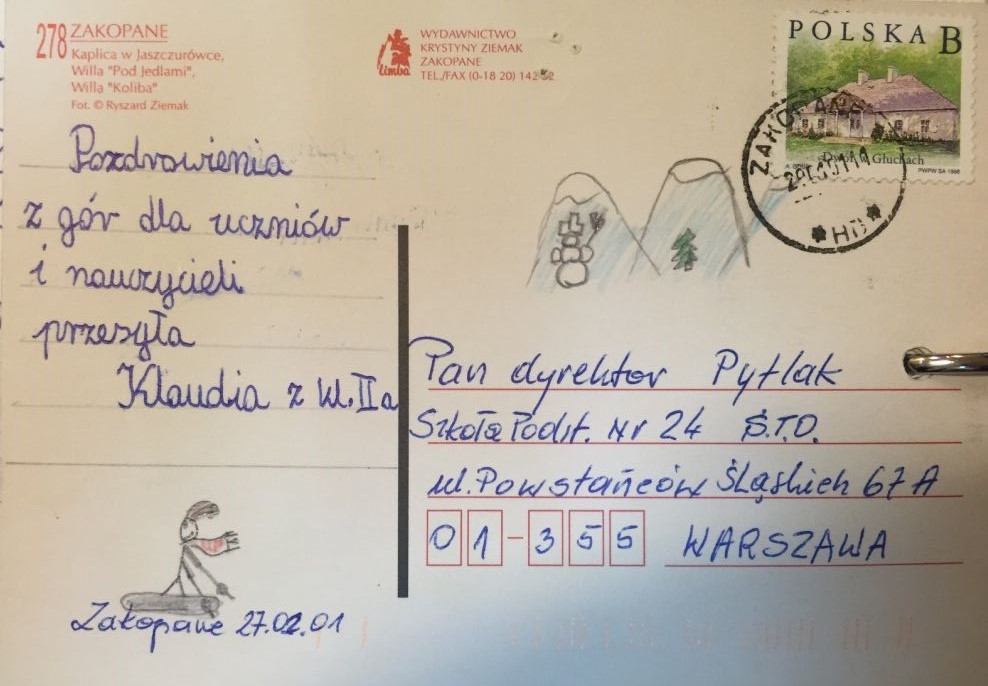 278 ZAKOPANE
Kaplica w Jaszczurówce,
Willa "Pod Jedlami",
Willa "Koliba"
Fot. © Ryszard Ziemak
Limba
WYDAWNICTWO
KRYSTYNY ZIEMAK
ZAKOPANE
TEL./FAX (0-18 20) 142
POLSKA B
Dwór w Głuchach
PWPW SA 1998
ZAKOPANE
HB
Pozdrowienia
z gór dla uczniów
i nauczycieli
przesyła
Klaudia z kl. IIa
Zakopane 27.02.01
Pan dyrektor Pytlak
Szkoła Podst. Nr 24 S.T.O.
ul. Powstańców Śląskich 67 A
01-355 WARSZAWA